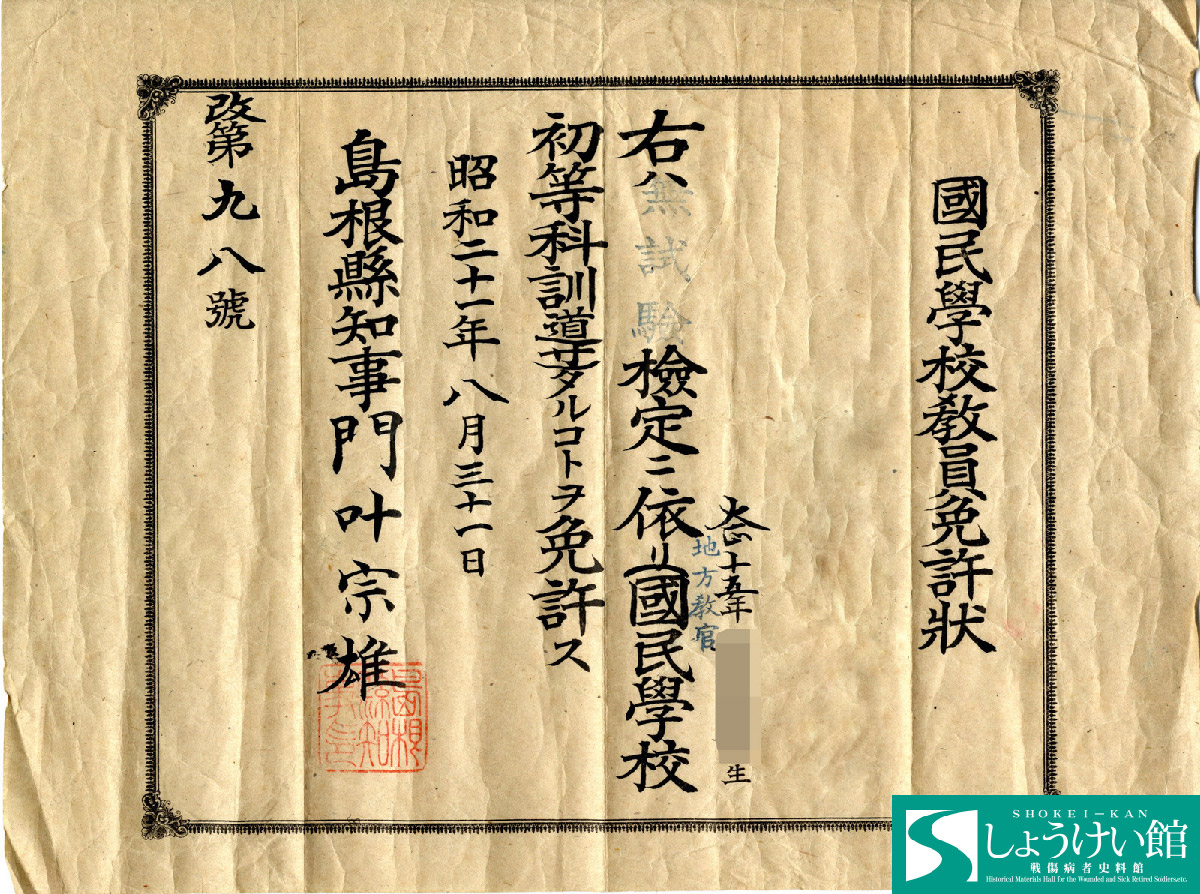 國民學校敎員免許狀
大正十五年 生
地方教官
右ハ無試驗檢定ニ依リ國民學校
初等科訓導タルコトヲ免許ス
昭和二十一年八月三十一日
島根縣知事門叶宗雄
改第九八號
SHOKEI-KAN
しょうけい館
戦傷病者史料館
Historical Materials Hall for the Wounded and Sick Retired Soldiers,etc.